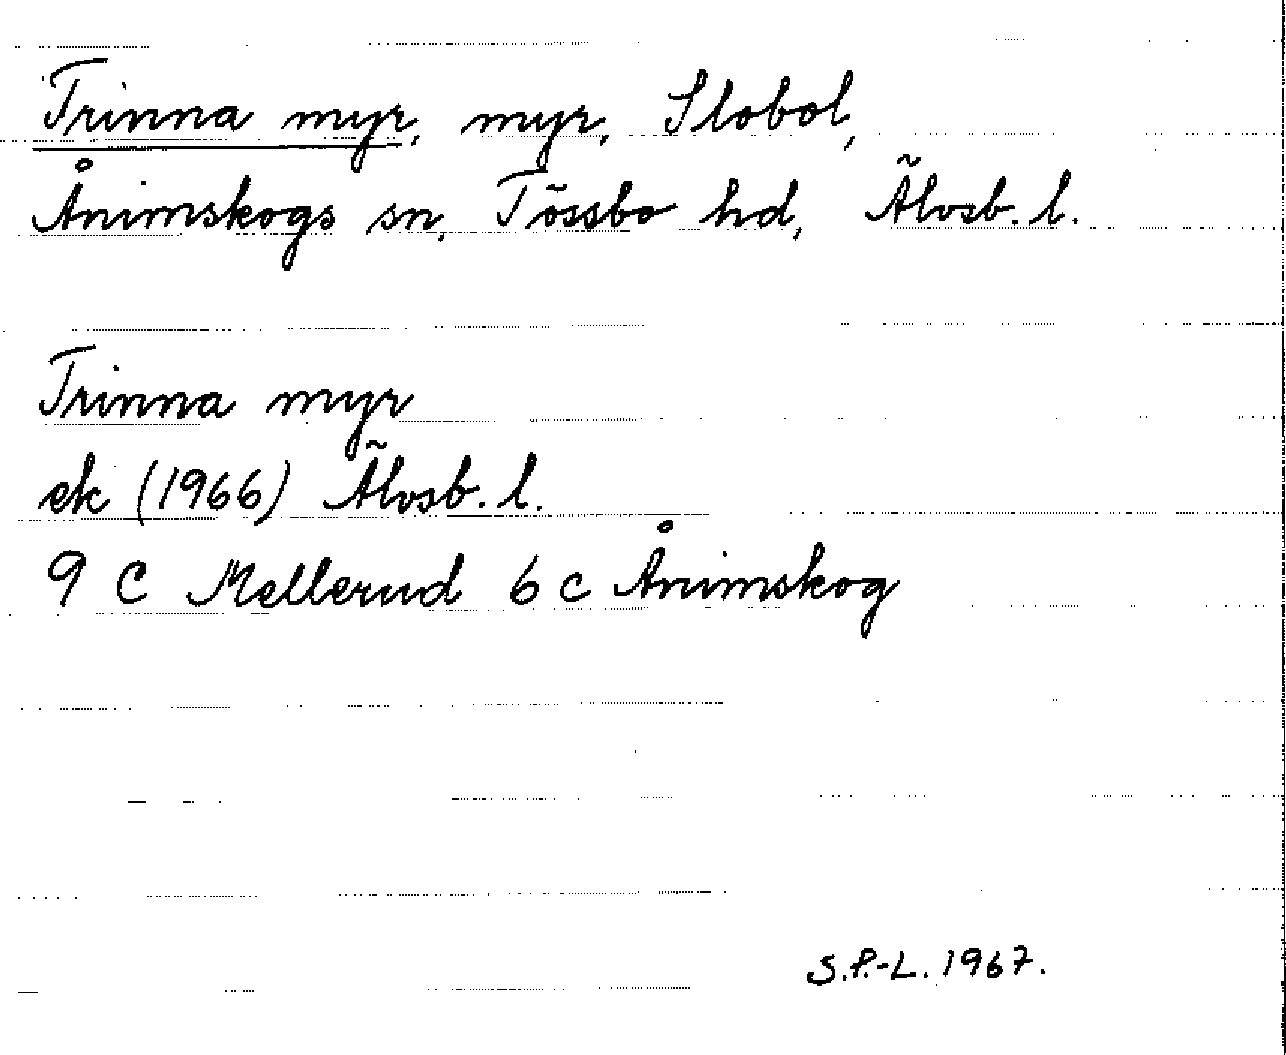 Trinna myr, myr, Slobol,
Ånimskogs sn, Tössbo hd, Älvsb. l.
Trinna myr
ek (1966) Älvsb. l.
9 C Mellerud 6 c Ånimskog
S.P.-L. 1967.